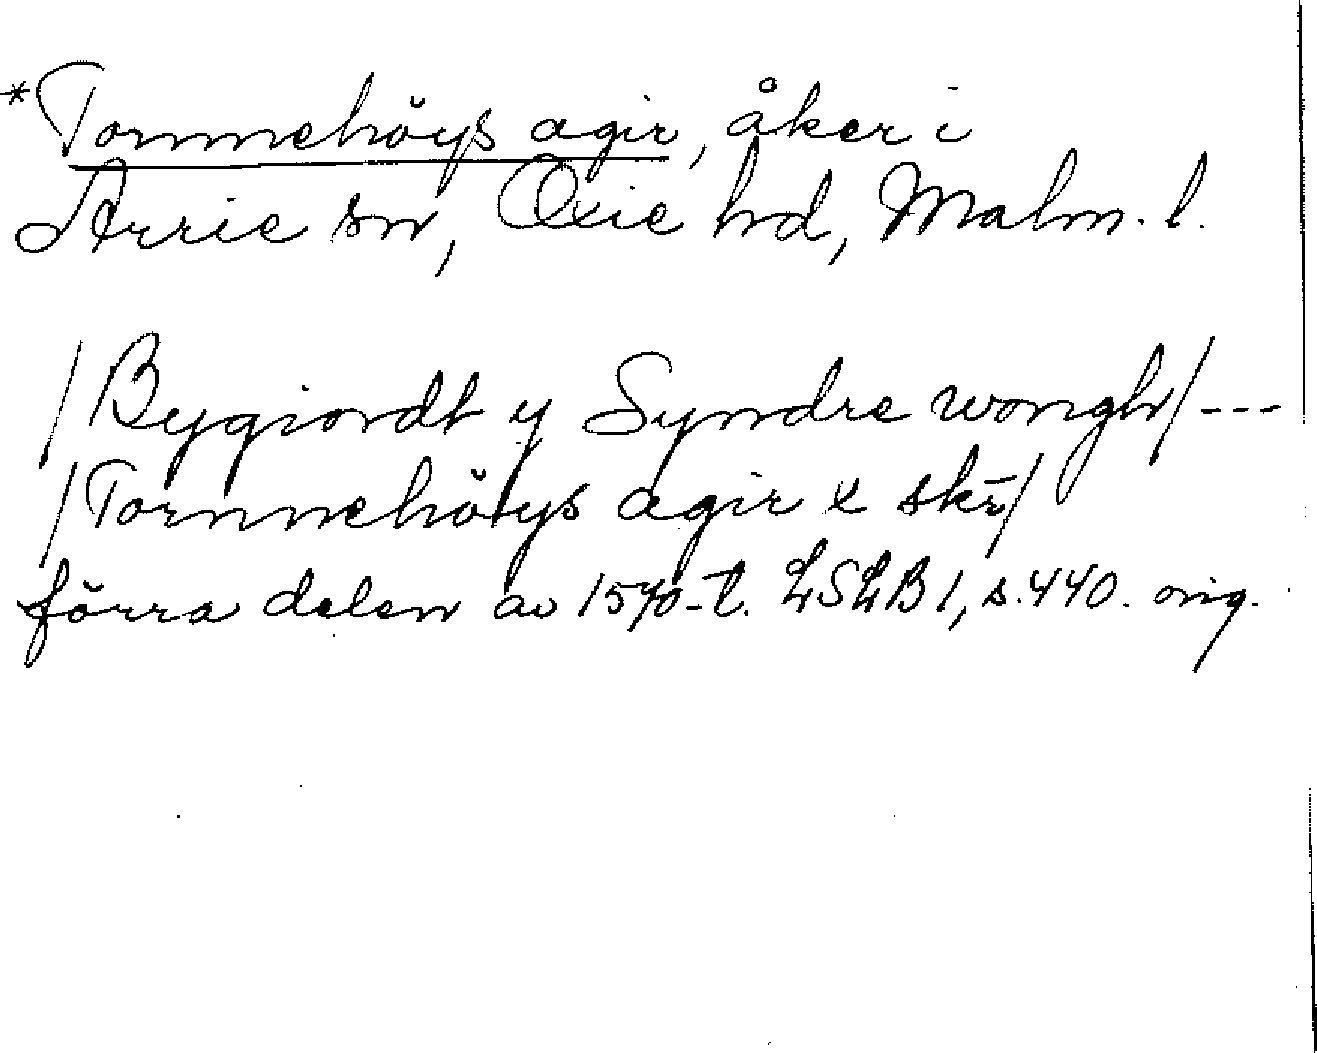 *Tornnehöys agir, åker i
Arrie sn, Oxie hd, Malm. l.
/Bygiordt y Syndre wongh/ ---
/Tornnehöys agir x skr/
förra delen av 1570-t. LSLB 1, s. 440. orig.